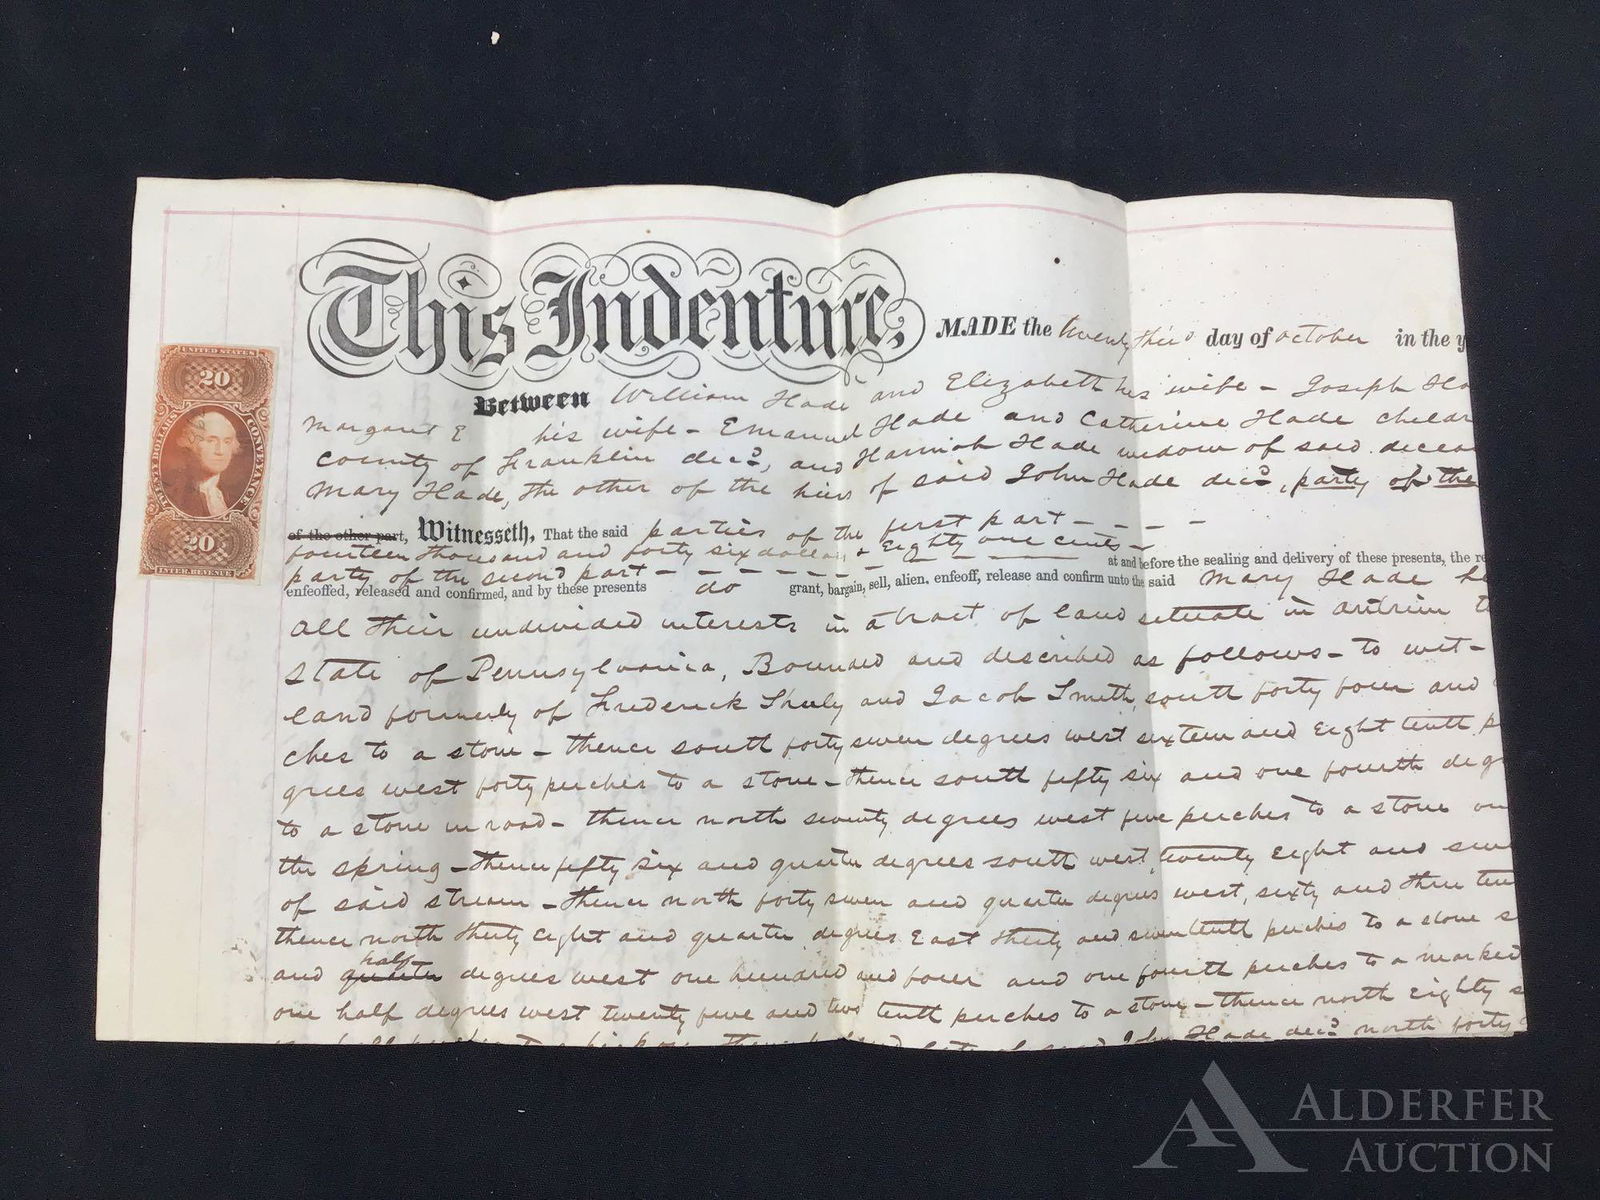 This Indenture, MADE the twenty third day of october in the y
Between William Hade and Elizabeth his wife – Joseph Ha
Margaret E his wife – Emanuel Hade and Catherine Hade childr
county of Franklin decd, and Hannah Hade widow of said decea
Mary Hade, the other of the heirs of said John Hade decd, party of the
of the other part, Witnesseth, That the said parties of the first part – – – –
fourteen thousand and forty six dollars & Eighty one cents – at and before the sealing and delivery of these presents, the re
party of the second part – – – – – – – –
enfeoffed, released and confirmed, and by these presents do grant, bargain, sell, alien, enfeoff, release and confirm unto the said Mary Hade he
all their undivided interests in a tract of land situate in antrim t
state of Pennsylvania, Bounded and described as follows – to wit –
land formerly of Frederick Shuly and Jacob Smith, south forty four and
ches to a stone – thence south forty seven degrees west sixteen and Eight tenth p
grees west forty perches to a stone – thence south fifty six and one fourth deg
to a stone in road – thence north seventy degrees west five perches to a stone on
the spring – thence fifty six and quarter degrees south west, twenty Eight and sev
of said stream – thence north forty seven and quarter degrees west, sixty and three ten
thence north thirty Eight and quarter degrees East thirty and seven tenth perches to a stone s
half
and quarter degrees west one hundred and four and one fourth perches to a marked
one half degrees west twenty five and two tenth perches to a stone – thence north Eighty s
John Hade decd north forty
UNITED STATES
20
TWENTY DOLLARS
CONVEYANCE
20
INTER. REVENUE
ALDERFER
AUCTION